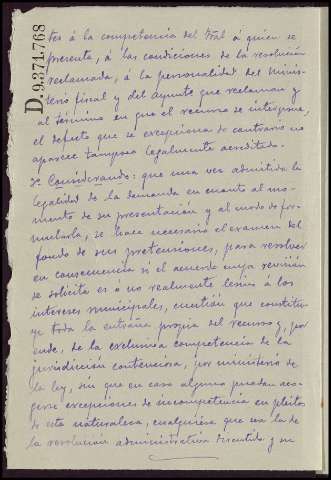 D.9.371.768
tes á la competencia del Tral á quien se
presenta, á las condiciones de la resolución
reclamada, á la personalidad del minis-
terio fiscal y del Aynto que reclaman y
al término en que el recurso se interpone,
el defecto que se excepciona de contrario no
aparece tampoco legalmente acreditado.
Considerando: que una vez admitida la
legalidad de la demanda en cuanto al mo-
mento de su presentación y al modo de for-
mularla, se hace necesario el examen del
fondo de sus pretensiones, para resolver
en consecuencia si el acuerdo cuya revisión
se solicita es ó no realmente lesivo á los
intereses municipales, cuestión que constitu-
ye toda la entraña propia del recurso y, por
ende, de la exclusiva competencia de la
jurisdicción contenciosa, por ministerio de
la ley, sin que en caso alguno puedan aco-
gerse excepciones de incompetencia en pleitos
de esta naturaleza, cualquiera que sea la de
la resolución administrativa discutida y su